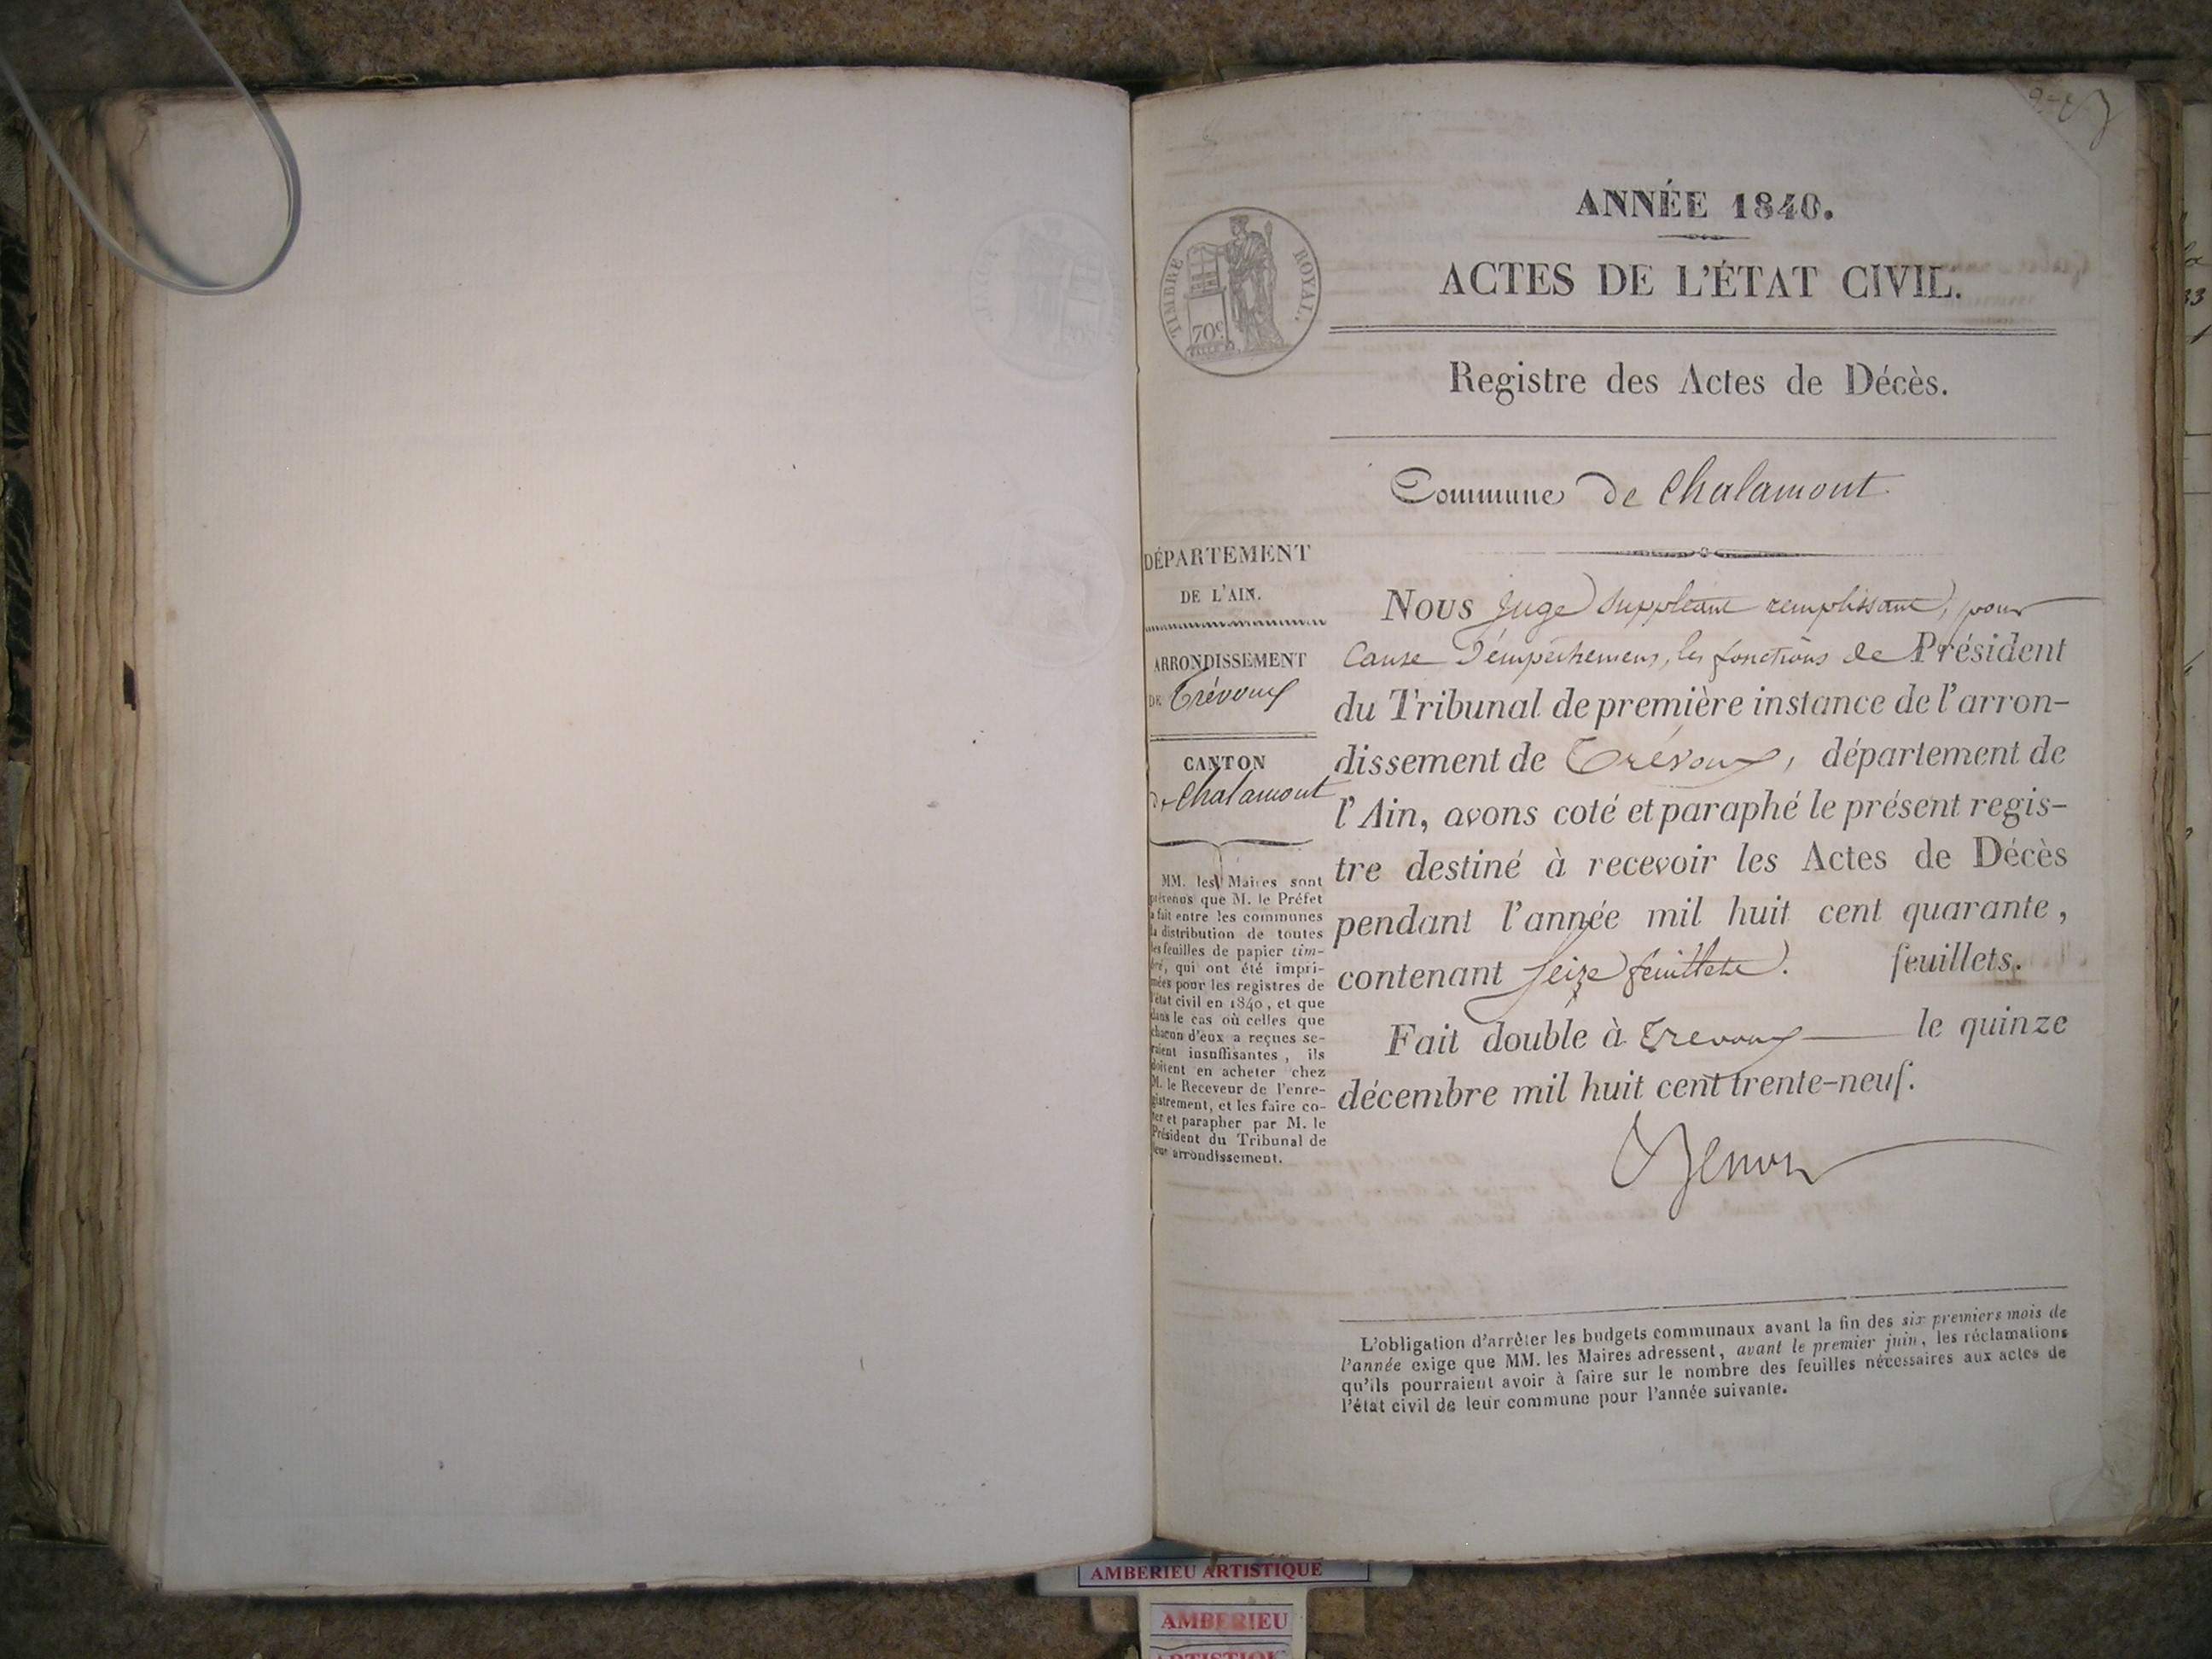 ANNÉE 1840.
ACTES DE L'ÉTAT CIVIL.
TIMBRE ROYAL.
70c
Registre des Actes de Décès.
Commune de Chalamont
DÉPARTEMENT
DE L'AIN.
ARRONDISSEMENT
DE Trévoux
CANTON
de Chalamont
MM. les Maires sont
prévenus que M. le Préfet
a fait entre les communes
la distribution de toutes
les feuilles de papier tim-
bré, qui ont été impri-
mées pour les registres de
l'état civil en 1840, et que
dans le cas où celles que
chacun d'eux a reçues se-
raient insuffisantes, ils
doivent en acheter chez
M. le Receveur de l'enre-
gistrement, et les faire co-
ter et parapher par M. le
Président du Tribunal de
leur arrondissement.
Nous Juge suppléant remplissant, pour
Cause d'empêchement, les fonctions de Président
du Tribunal de première instance de l'arron-
dissement de Trévoux, département de
l'Ain, avons coté et paraphé le présent regis-
tre destiné à recevoir les Actes de Décès
pendant l'année mil huit cent quarante,
contenant Seize feuillets. feuillets.
Fait double à Trevoux le quinze
décembre mil huit cent trente-neuf.
L'obligation d'arrêter les budgets communaux avant la fin des six premiers mois de
l'année exige que MM. les Maires adressent, avant le premier juin, les réclamations
qu'ils pourraient avoir à faire sur le nombre des feuilles nécessaires aux actes de
l'état civil de leur commune pour l'année suivante.
AMBERIEU ARTISTIQUE
AMBERIEU